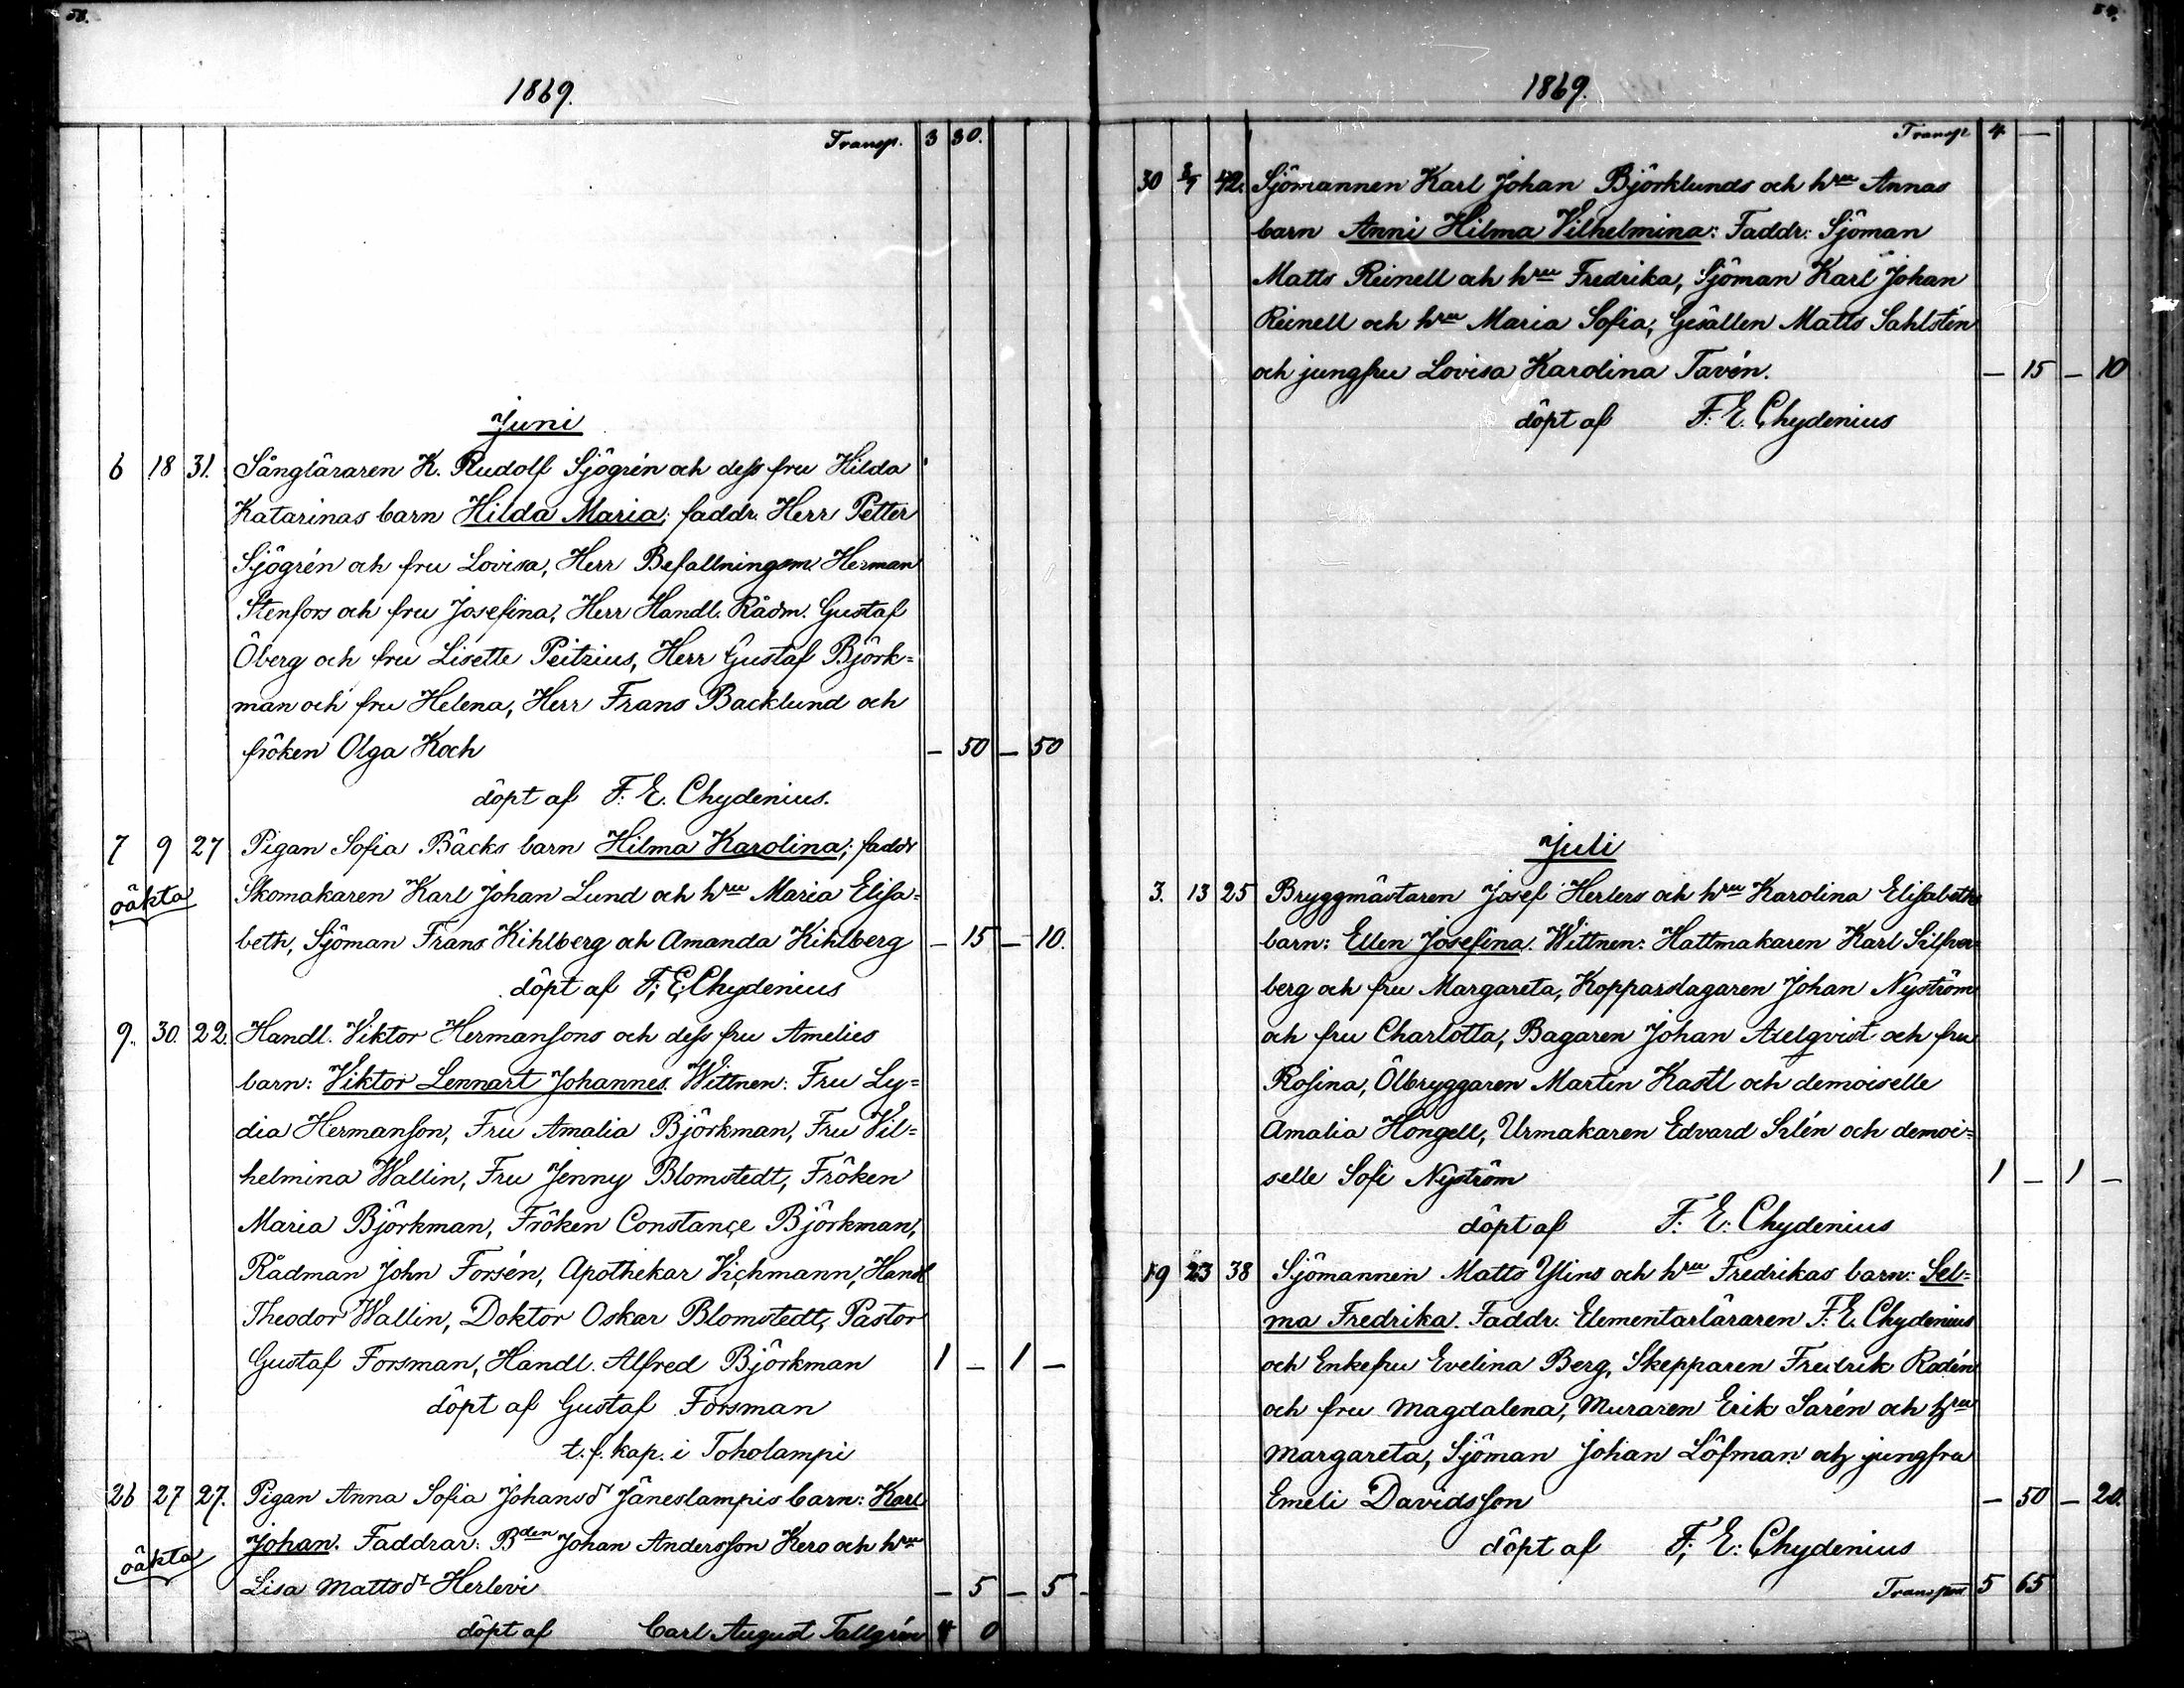 58.
1869.
Transp. 3 30.
Juni
6 18 31. Sångläraren K. Rudolf Sjögrén och dess fru Hilda
Katarinas barn Hilda Maria; faddr. Herr Petter
Sjögrén och fru Lovisa, Herr Befallningsm. Herman
Stenfors och fru Josefina, Herr Handl. Rådm. Gustaf
Öberg och fru Lisette Peitzius, Herr Gustaf Björk=
man och fru Helena, Herr Frans Backlund och
fröken Olga Koch — 50 — 50
döpt af F. E. Chydenius.
7 9 27 Pigan Sofia Bäcks barn Hilma Karolina; faddr
oäkta Skomakaren Karl Johan Lund och hru Maria Elisa=
beth, Sjöman Frans Kihlberg och Amanda Kihlberg — 15 — 10.
döpt af F; E; Chydenius
9. 30. 22. Handl. Viktor Hermansons och dess fru Amelies
barn: Viktor Lennart Johannes. Wittnen: Fru Ly=
dia Hermanson, Fru Amalia Björkman, Fru Vil=
helmina Wallin, Fru Jenny Blomstedt, Fröken
Maria Björkman, Fröken Constance Björkman,
Rådman John Forsén, Apothekar Vichmann, Handl
Theodor Wallin, Doktor Oskar Blomstedt, Pastor
Gustaf Forsman, Handl. Alfred Björkman 1 — 1 —
döpt af Gustaf Forsman
t. f. kap. i Toholampi
26 27 27. Pigan Anna Sofia Johansdr Jäneslampis barn: Karl
oäkta Johan. Faddrar: Bden Johan Andersson Kero och hru
Lisa Mattsdr Herlevi — 5 — 5 -
döpt af Carl August Tallgrén 4 0
1869.
Transp. 4 —
30 2/7 42. Sjömannen Karl Johan Björklunds och hru Annas
barn Anni Hilma Vilhelmina: Faddr: Sjöman
Matts Reinell och hru Fredrika, Sjöman Karl Johan
Reinell och hru Maria Sofia, Gesällen Matts Sahlstén
och jungfru Lovisa Karolina Tavén. — 15 — 10
döpt af F. E. Chydenius
Juli
3. 13 25 Bryggmästaren Josef Herlers och hru Karolina Elisabeths
barn: Ellen Josefina. Wittnen: Hattmakaren Karl Silfver=
berg och fru Margareta, Kopparslagaren Johan Nyström
och fru Charlotta, Bagaren Johan Axelqvist och fru
Rosina, Ölbryggaren Martin Kastl och demoiselle
Amalia Hongell, Urmakaren Edvard Silén och demoi=
selle Sofi Nyström 1 — 1 —
döpt af F. E. Chydenius
19 23 38 Sjömannen Matts Ylins och hru Fredrikas barn: Sel=
ma Fredrika. Faddr. Elementarläraren F. E. Chydenius
och Enkefru Evelina Berg, Skepparen Fredrik Rodén
och fru Magdalena, Muraren Erik Sarén och hru
Margareta, Sjöman Johan Löfman och jungfru
Emeli Davidsson — 50 — 20.
döpt af F; E: Chydenius
Transport 5 65